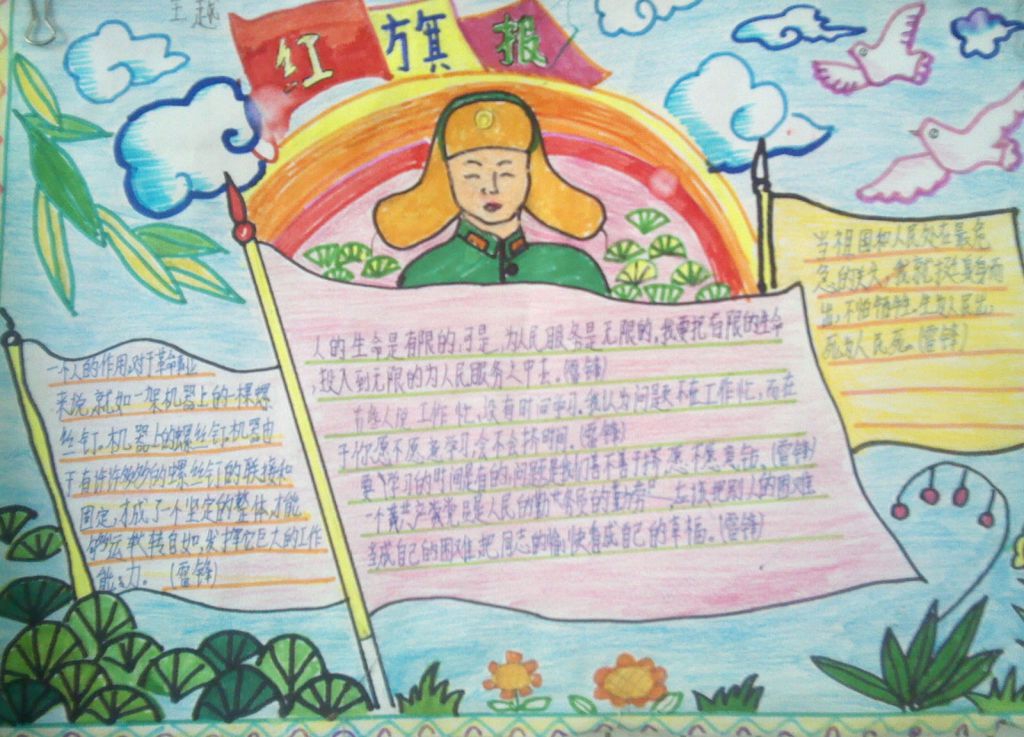 王越
红旗报
一个人的作用,对于革命事业
来说,就如一架机器上的一棵螺
丝钉.机器上的螺丝钉.机器由
于有许许多多的螺丝钉的联接和
固定,才成了一个坚定的整体,才能
够运转自如,发挥它巨大的工作
能力。(雷锋)
人的生命是有限的.可是,为人民服务是无限的.我要把有限的生命
,投入到无限的为人民服务之中去。(雷锋)
有些人说工作忙,没有时间学习.我认为问题不在工作忙,而在
于你愿不愿意学习,会不会挤时间。(雷锋)
要学习的时间是有的,问题是我们善不善于挤,愿不愿意钻。(雷锋)
一个共产党员是人民的勤务员的 应该把别人的困难
当成自己的困难,把同志的愉快看成自己的幸福。(雷锋)
当祖国和人民处在最危
急的关头,我就挺身而
出,不怕牺牲.生为人民生,
死为人民死。(雷锋)